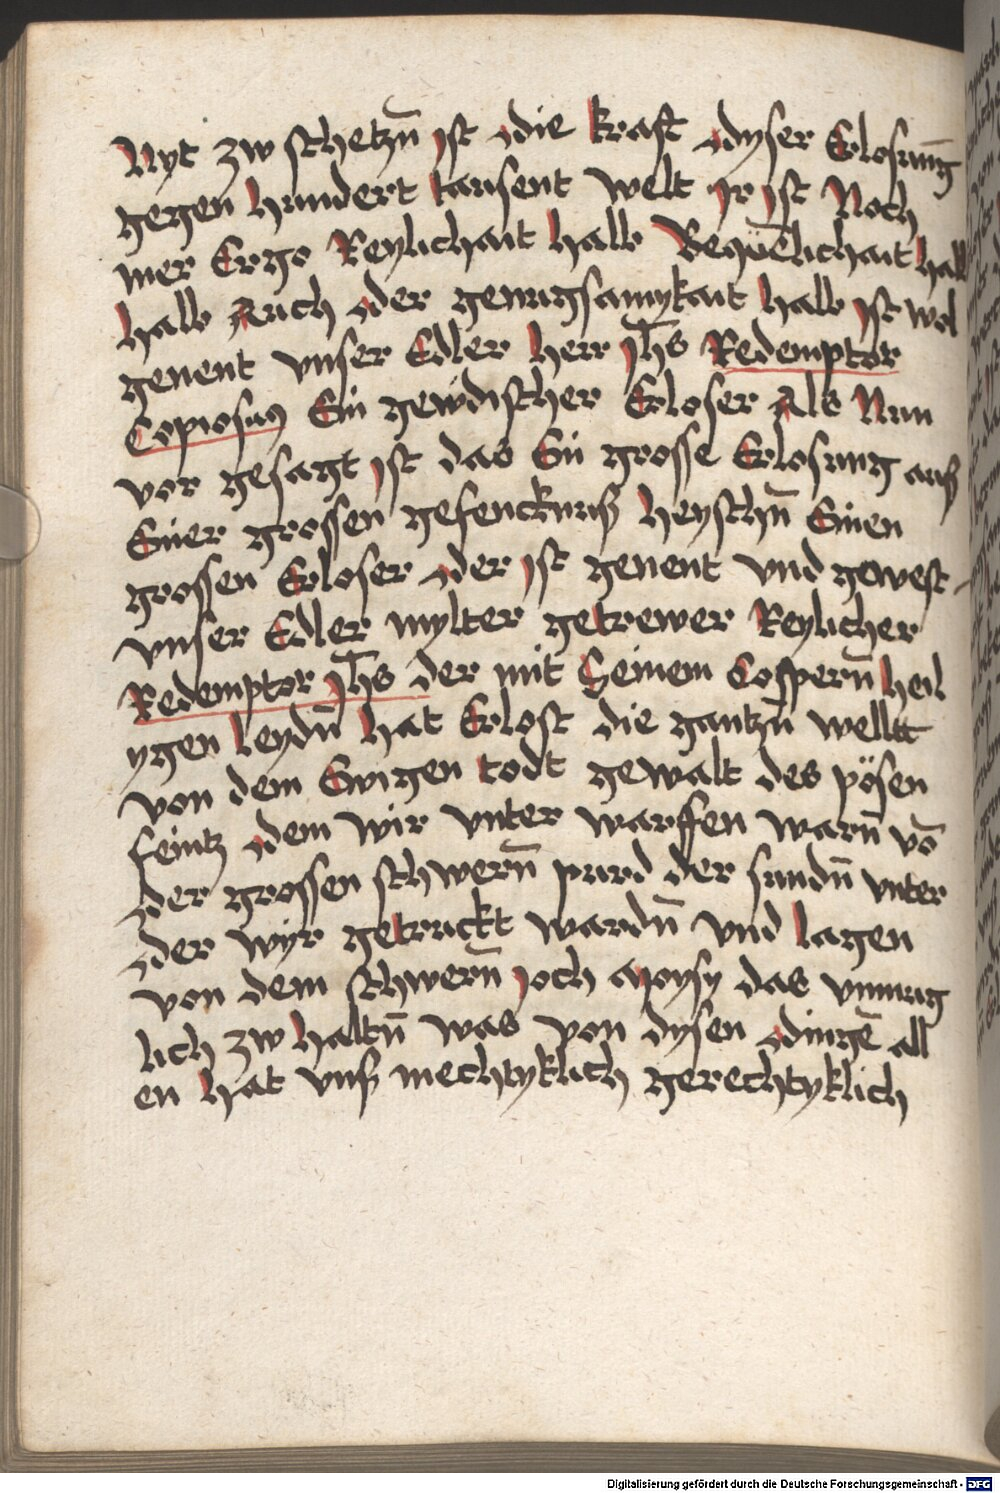 Nyt zw schetzn̄ ist die kraft dyser Erlosūng
gegen hundert tausent welt Ir ist Noch
mer Ergo Reylichait halb Beqūelichait hall
halb Auch der genugsamykait halb ist wol
genent vnser Edler herr Jhs Redemptor
Copiosus Ein gewdischer Erloser Als Nun
vor gesagt ist das Ein grosse Erlosung auß
Einer grossen gefencknuß heyschn̄ Einen
grossen Erloser der ist genent vnd gewest
vnser Edler mylter getrewer Reylicher
Redemptor Jhs der mit Seinem Cospern̄ heil
ygen leydn̄ hat Erlost die gantzn̄ welltt
von dem Ewigen todt gewalt des pösen
feintz dem wir vnter warffen warn̄ vō
der grossen schwern̄ purd der sundn̄ vnter
der wyr getruckt wardn̄ vnd lagen
von dem schwern̄ Joch Moysy das vnmug
lich zw haltn̄ was von dysen dingē all
en hat vnß mechtyklich gerechtyklich
Digitalisierung gefördert durch die Deutsche Forschungsgemeinschaft - DFG